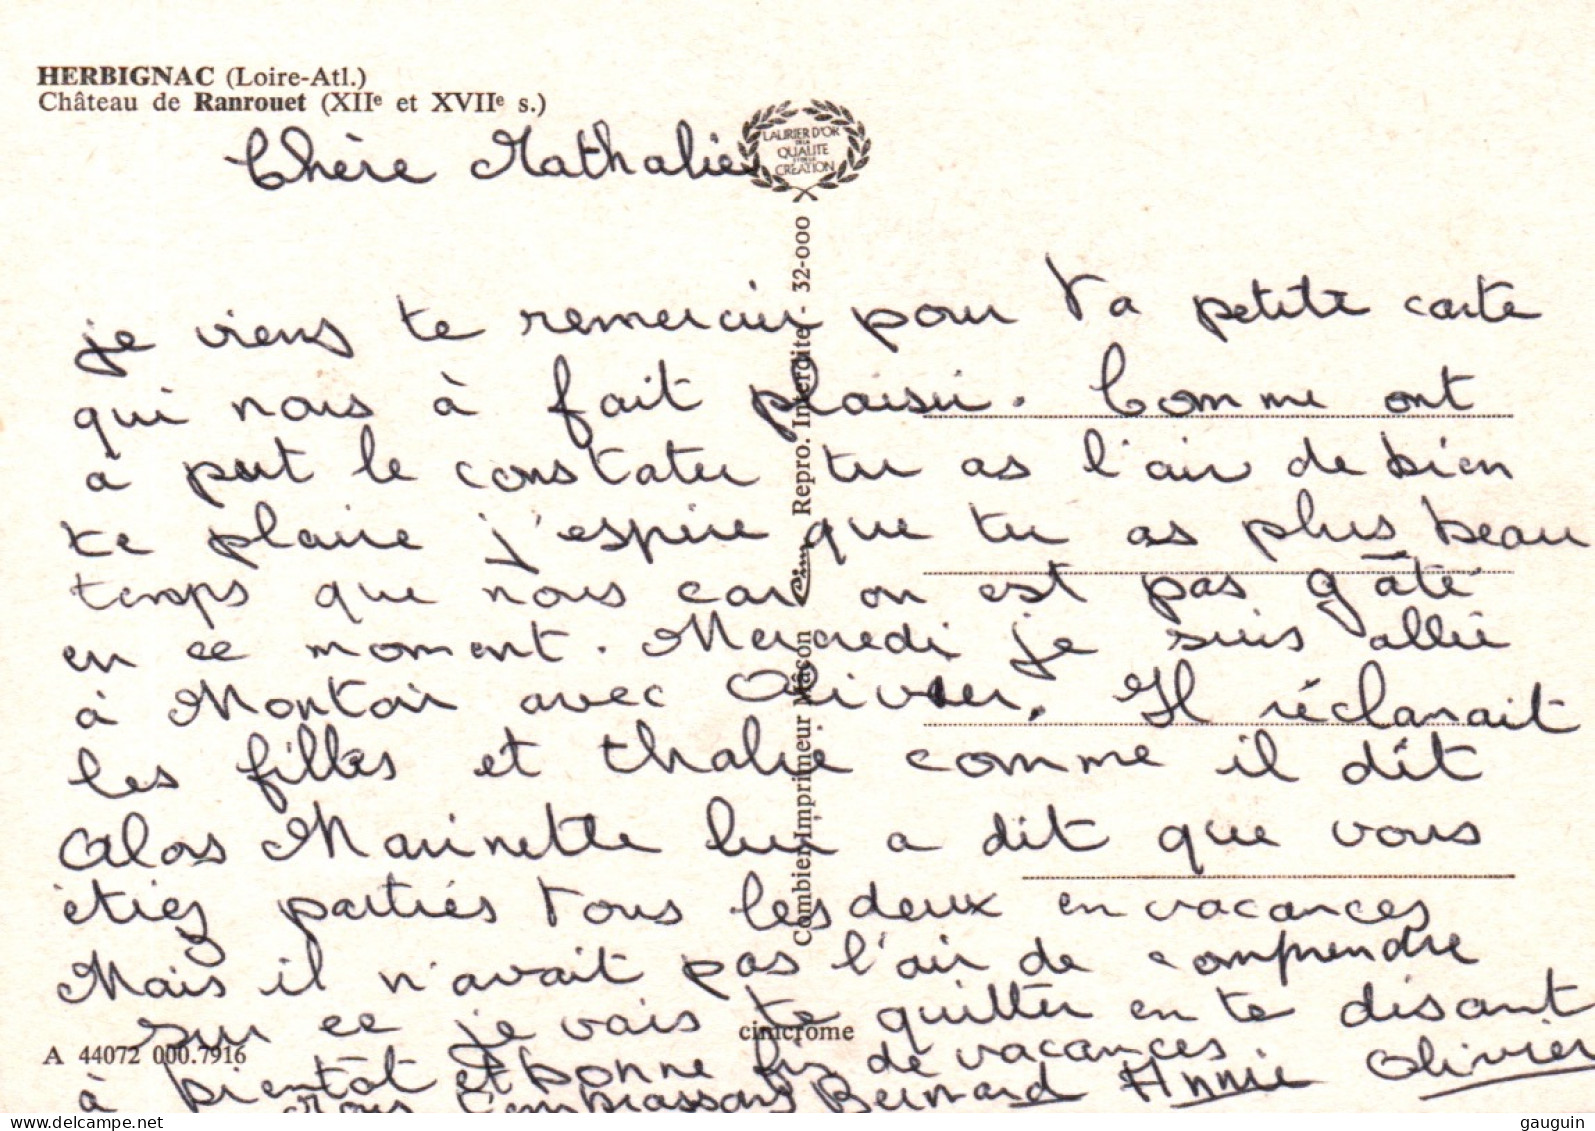 HERBIGNAC (Loire-Atl.)
Château de Ranrouet (XIIe et XVIIe s.)
LAURIER D'OR
DE LA
QUALITE
ET DE LA
CREATION
Chère Nathalie
je viens te remercier pour ta petite carte
qui nous à fait plaisir. Comme ont
à peut le constater tu as l'air de bien
te plaire j'espère que tu as plus beau
temps que nous car on est pas gâté
en ce moment. Mercredi je suis allée
à Montoir avec Olivier. Il réclamait
les filles et thalie comme il dit
Alors Marinette lui a dit que vous
étiez parties tous les deux en vacances
Mais il n'avait pas l'air de comprendre
sur ce je vais te quitter en te disant
à bientôt et bonne fin de vacances
Nous t'embrassons Bernard Annie Olivier
Combier Imprimeur Mâcon Cim Repro. Interdite - 32-000
cimcrome
A 44072 000.7916
www.delcampe.net
gauguin